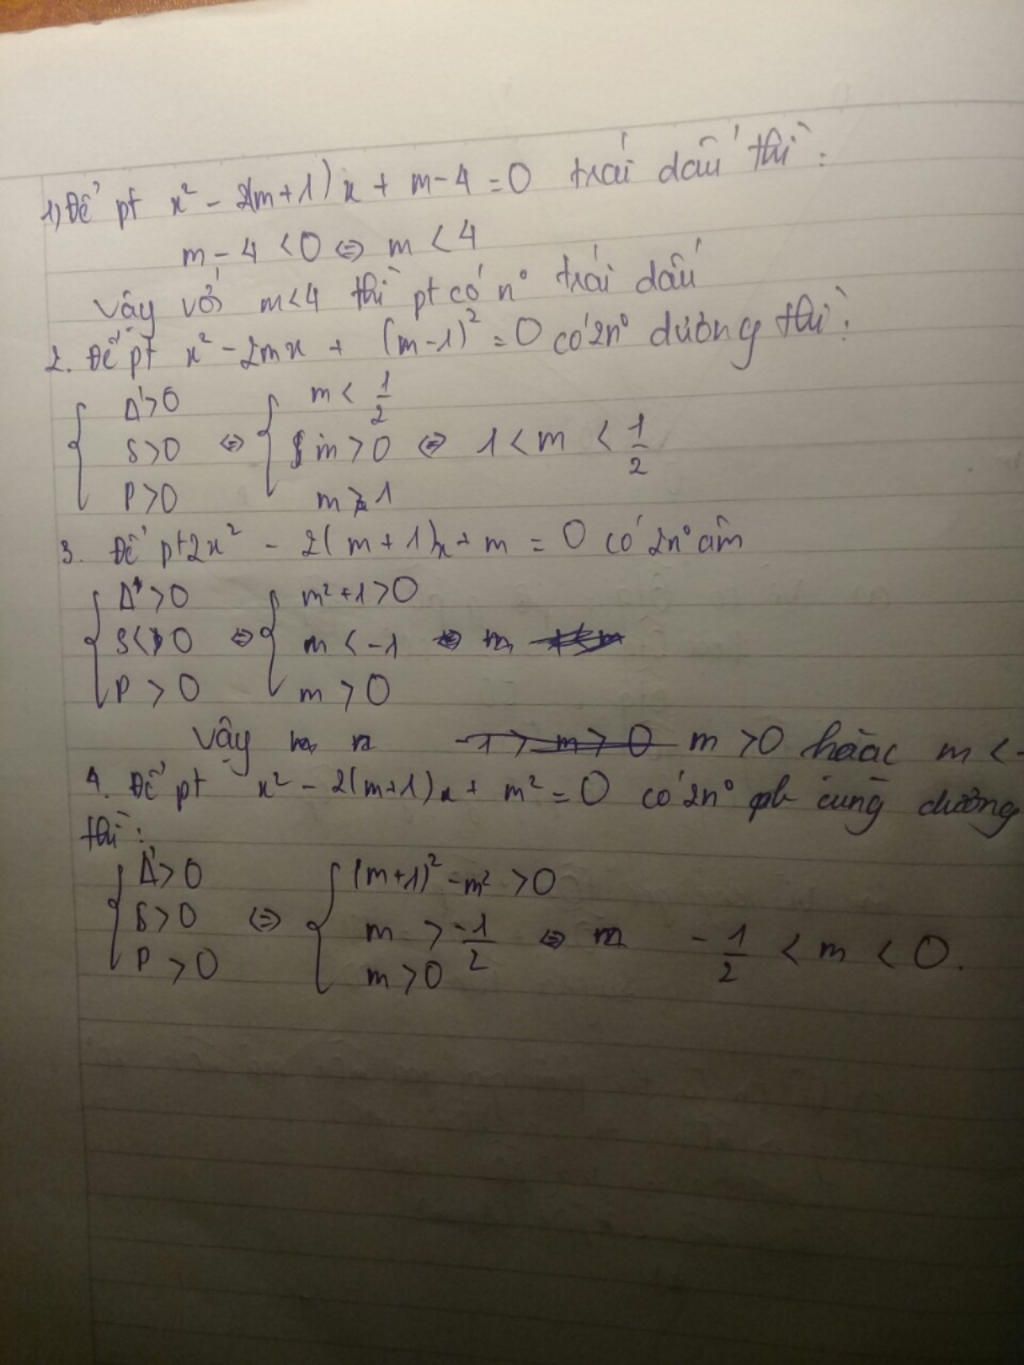 1) Để pt x² - 2(m+1)x + m-4 = 0 trái dấu thì :
m - 4 < 0 ⇔ m < 4
Vậy với m<4 thì pt có n° trái dấu
2. Để pt x² - 2mx + (m-1)² = 0 có 2n° dương thì :
Δ' > 0 m < 1/2
S > 0 ⇔ m > 0 ⇔ 1 < m < 1/2
P > 0 m 1
3. Để pt 2x² - 2(m+1)x + m = 0 có 2n° âm
Δ' > 0 m² + 1 > 0
S < 0 ⇔ m < -1 ⇔ m
P > 0 m > 0
Vậy m > 0 hoặc m < -
4. Để pt x² - 2(m+1)x + m² = 0 có 2n° pb cùng dương
thì :
Δ' > 0 (m+1)² - m² > 0
S > 0 ⇔ m > -1/2 ⇔ m - 1/2 < m < 0.
P > 0 m > 0